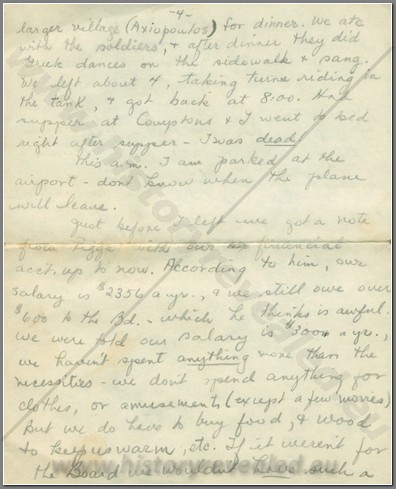 -4-
larger village (Axiopoulos) for dinner. We ate
with the soldiers, & after dinner they did
Greek dances on the sidewalk & sang.
We left about 4, taking turns riding in
the tank, & got back at 8:00. Had
supper at Comptons & I went to bed
right after supper - I was dead!
This a.m. I am parked at the
airport - dont know when the plane
will leave.
Just before I left we got a note
from Riggs with our financial
acct. up to now. According to him, our
salary is $2356 a yr., & we still owe over
$600 to the Bd. - which he thinks is awful.
We were told our salary is $3004 a yr.,
we haven't spent anything more than the
necessities - we don't spend anything for
clothes, or amusements (except a few movies)
But we do have to buy food, & wood
to keep us warm, etc. If it weren't for
the Board we wouldn't have such a